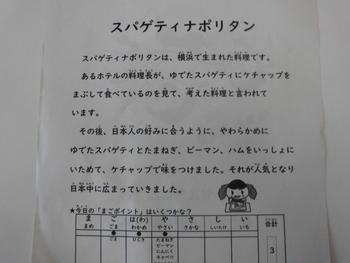 スパゲティナポリタン
スパゲティナポリタンは、横浜で生まれた料理です。
あるホテルの料理長が、ゆでたスパゲティにケチャップを
まぶして食べているのを見て、考えた料理と言われて
います。
その後、日本人の好みに合うように、やわらかめに
ゆでたスパゲティとたまねぎ、ピーマン、ハムをいっしょに
いためて、ケチャップで味をつけました。それが人気となり
日本中に広まっていきました。
★今日の「まごポイント」はいくつかな?
ま ご は(わ) や さ し い 合計
まめ ごま わかめ やさい さかな しいたけ いも
● ● ● 3
ごま ひじき たまねぎ
ピーマン
にんにく
キャベツ